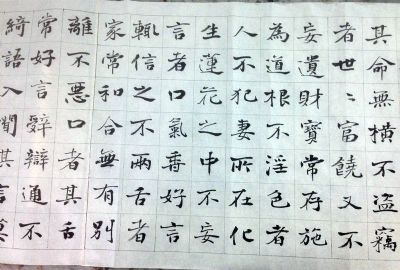 其命無橫不盜竊
者世〻富饒又不
妄遺財寶常存施
為道根不淫色者
人不犯妻所在化
生蓮花之中不妄
言者口氣香好言
輒信之不兩舌者
家常和合無有別
離不惡口者其舌
常好言辭辯通不
綺語入聞其言莫